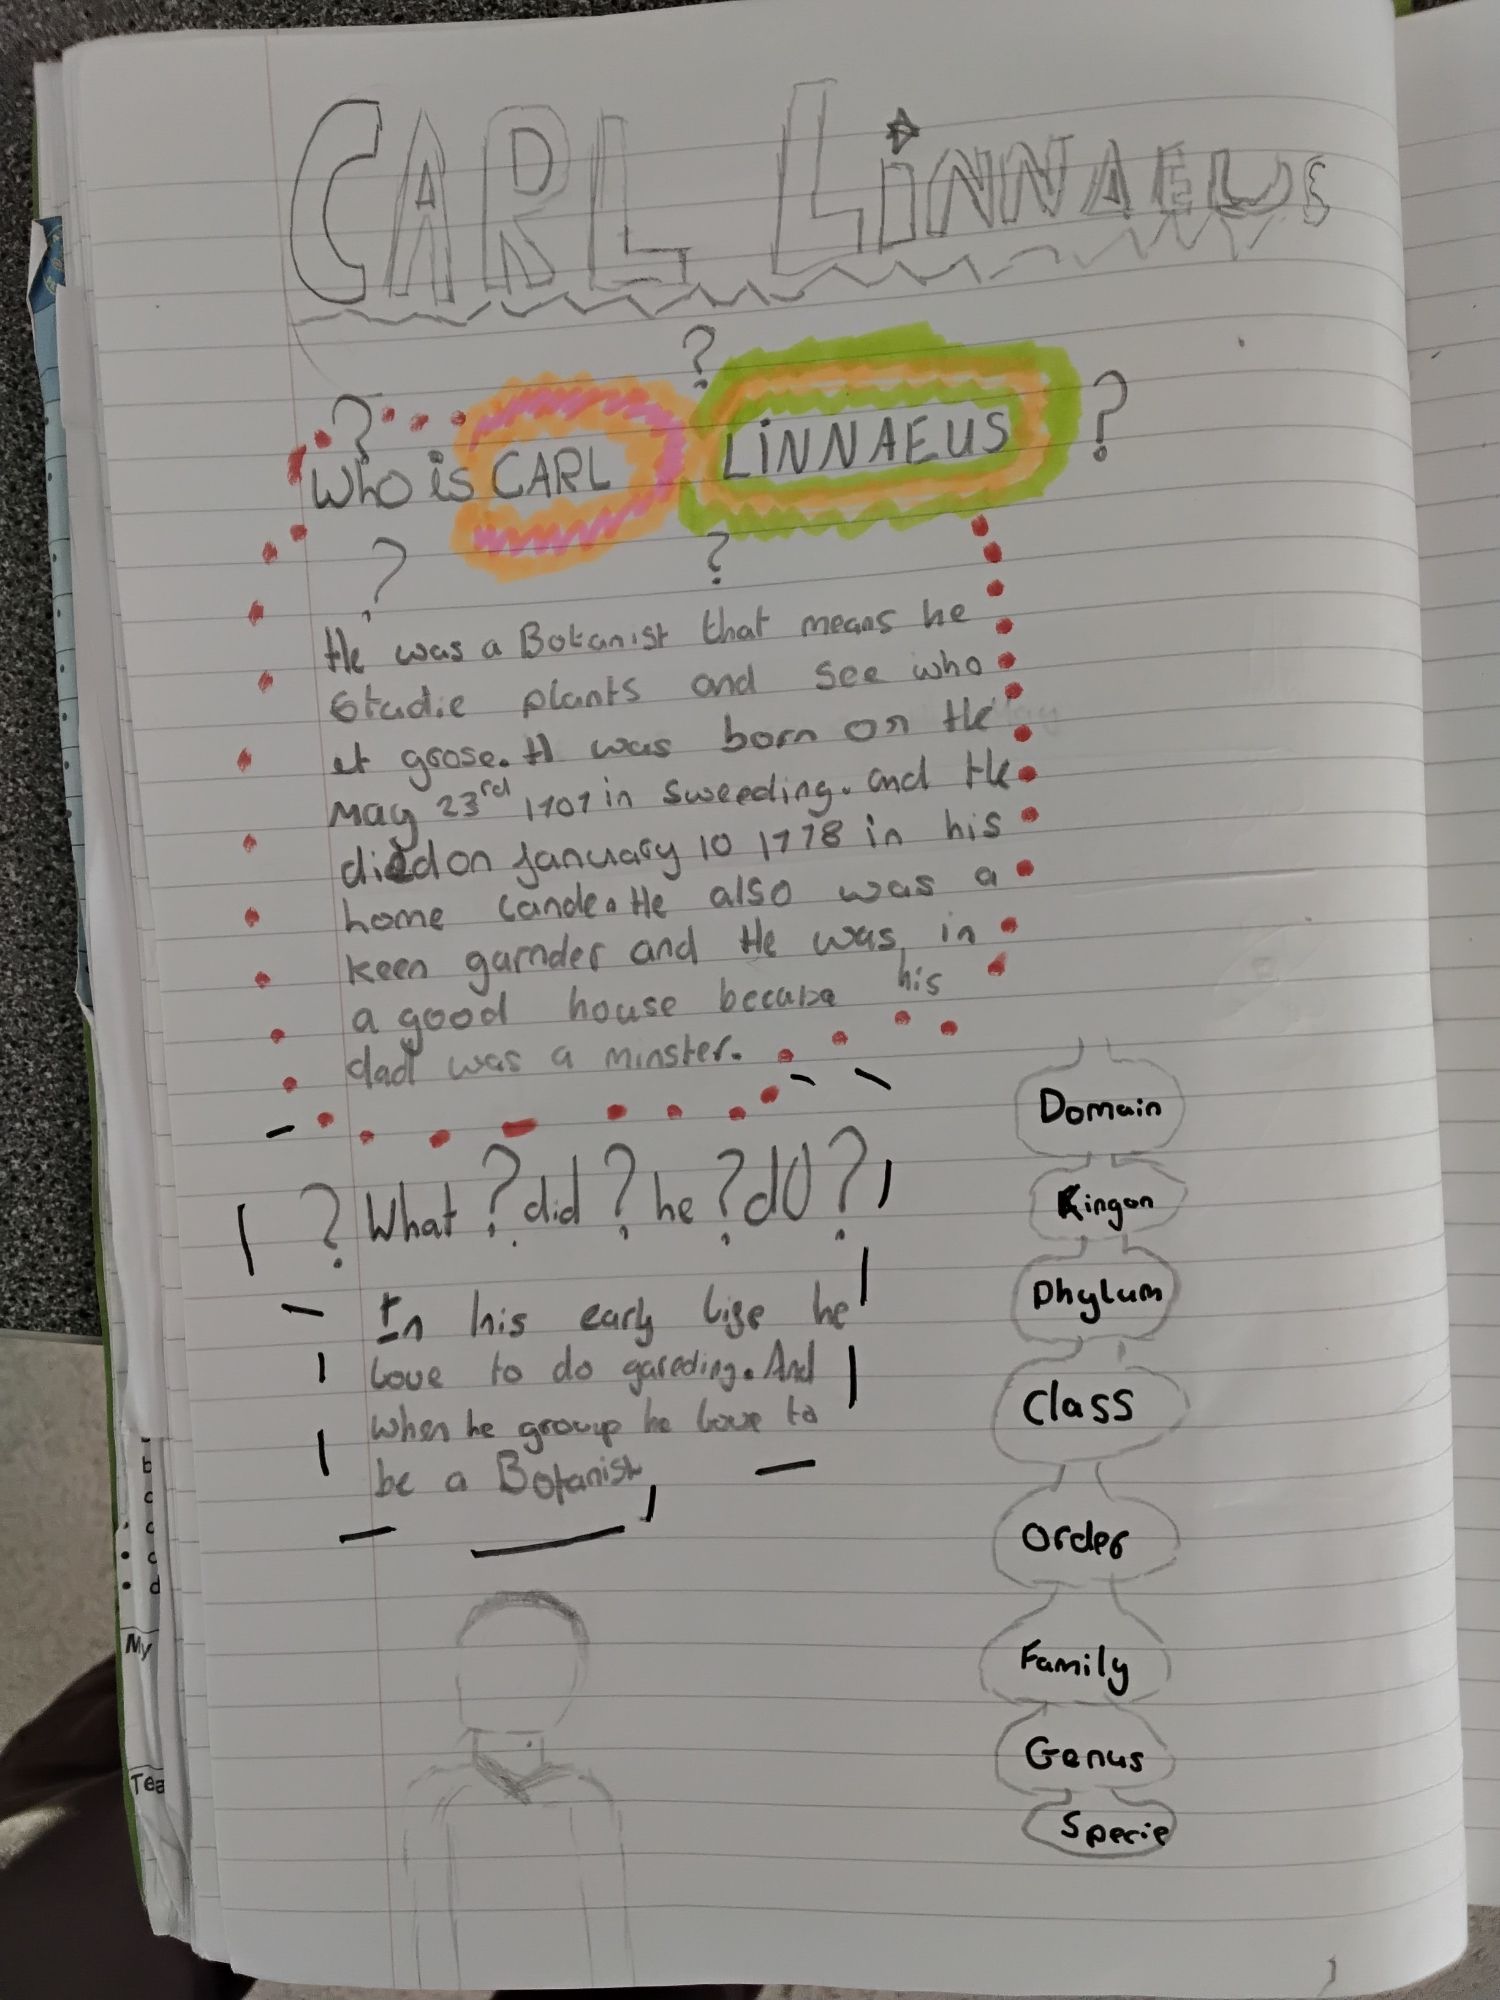 CARL LiNNAEUS
?
? ?
Who is CARL LiNNAEUS
? ?
He was a Botanist that means he
studie plants and see who
et grose. H was born on He
May 23rd 1707 in Sweeding. and He
died on January 10 1778 in his
home cande. He also was a
keen garnder and He was in
a good house becuase his
dad was a minster.
? What ? did ? he ? do ?
In his early lige he
love to do gareding. And
when he group he love to
be a Botanist
Domain
Kingon
Phylum
Class
Order
Family
Genus
Specie
b
c
c
c
d
My
Tea